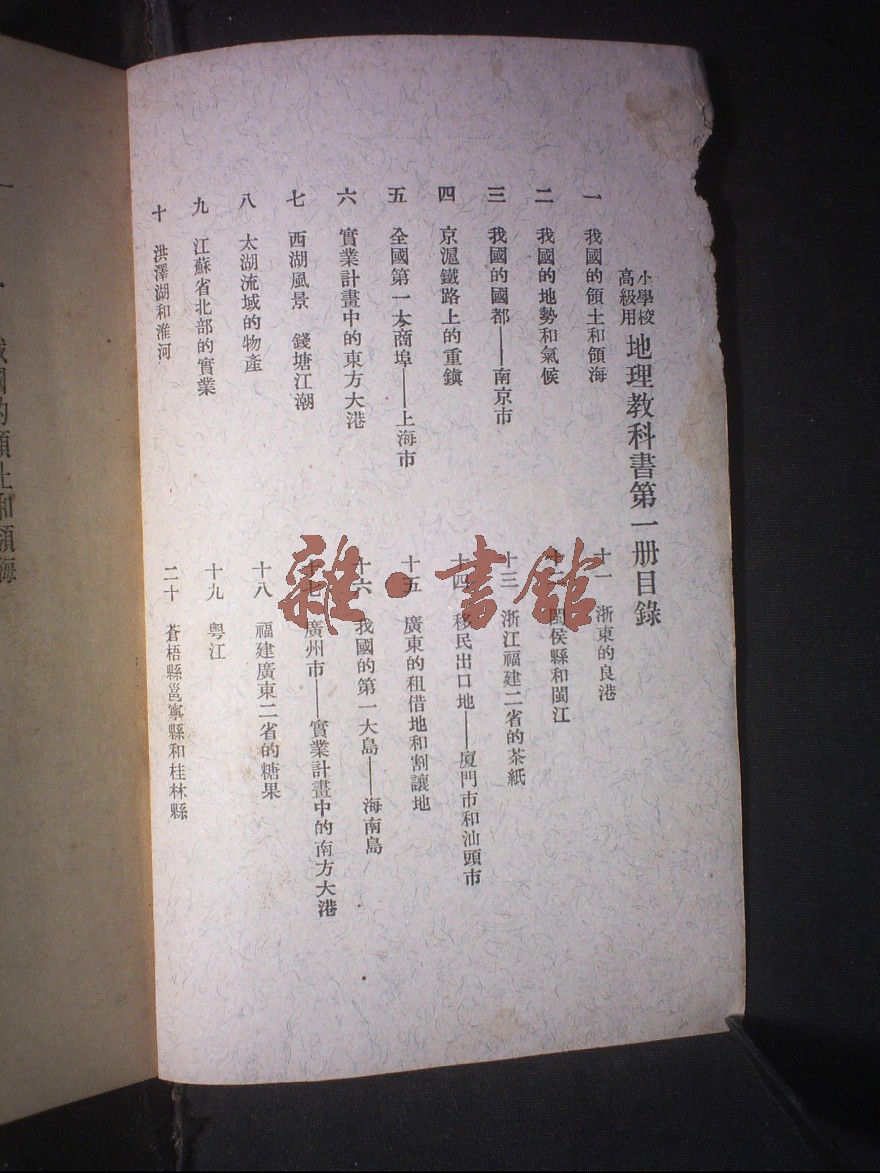 小學校
高級用
地理教科書第一册目錄
一　我國的領土和領海
二　我國的地勢和氣候
三　我國的國都——南京市
四　京滬鐵路上的重鎮
五　全國第一大商埠——上海市
六　實業計畫中的東方大港
七　西湖風景　錢塘江潮
八　太湖流域的物產
九　江蘇省北部的實業
十　洪澤湖和淮河
十一　浙東的良港
閩侯縣和閩江
十三　浙江福建二省的茶紙
十四　移民出口地——廈門市和汕頭市
十五　廣東的租借地和割讓地
十六　我國的第一大島——海南島
十七　廣州市——實業計畫中的南方大港
十八　福建廣東二省的糖果
十九　粤江
二十　蒼梧縣邕寧縣和桂林縣
雜·書館
一
國的領土和領海